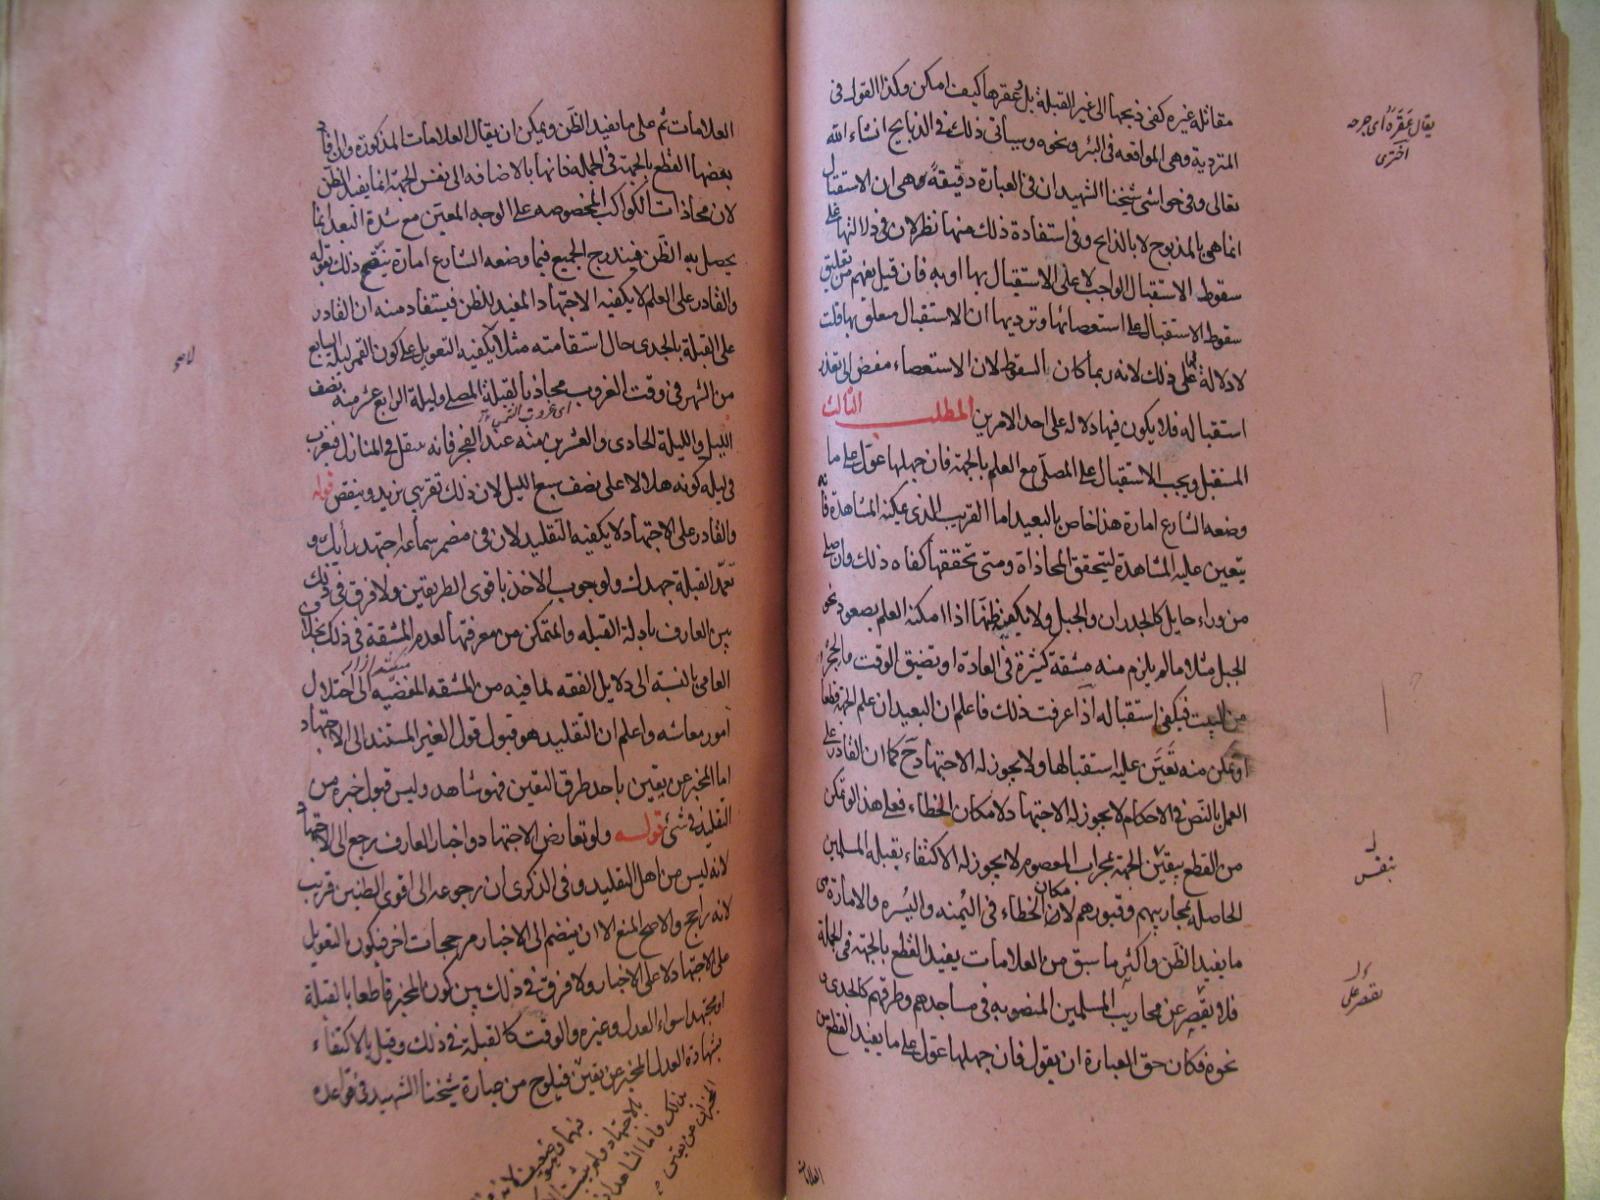 مقاتلة غيره كفى ذبحها الى غير القبلة بل وعقرها كيف امكن وكذا القول فى
المتردية وهى الواقعه فى البئر ونحوه وسياتى ذلك فى الذبايح انشاء الله
تعالى وفى حواشى شيخنا الشهيد ان فى العبارة دقيقة وهى ان الاستقبال
انما هى بالمذبوح لا بالذابح وفى استفادة ذلك منها نظر لان فى دلالتها على
سقوط الاستقبال الواجب لا على الاستقبال بها او به فان قيل يفهم من تعليق
سقوط الاستقبال على استعصائها وترديها ان الاستقبال معلق بها قلت
لا دلالة لها على ذلك لانه ربما كان السقوط لان الاستعصاء مفض الى تعذر
استقباله فلا يكون فيها دلاله على احد الامرين المطلب الثالث
المستقبل ويجب الاستقبال على المصلى مع العلم بالجهة فان جهلها عوّل على ما
وضعه الشارع امارة هذا خاص بالبعيد اما القريب الذى يمكنه المشاهدة فانه
يتعين عليه المشاهدة ليتحقق المحاذاة ومتى تحققها كفاه ذلك وان صلى
من وراء حايل كالجدران والجبل ولا يكفى ظنها اذا امكنه العلم بصعود نحو
الجبل مثلا ما لم يلزم منه مشقة كثيرة فى العادة او تضيق الوقت والحجر
من البيت فيكفى استقباله اذا عرفت ذلك فاعلم ان البعيد ان علم الجهة قطعا
او تمكن منه تعيّن عليه استقبالها ولا يجوز له الاجتهاد ح كما ان القادر على
العمل بالنّص فى الاحكام لا يجوز له الاجتهاد لامكان الخطاء فعلى هذا لو تمكن
من القطع بيقين الجهة بمحراب المعصوم لا يجوز له الاكتفاء بقبلة المسلمين
الحاصلة بمحاريبهم وقبورهم لامكان الخطاء فى اليمنه واليسره والامارة هى
ما يفيد الظن واكثر ما سبق من العلامات يفيد القطع بالجهة فى الجملة
فلا يقصر عن محاريب المسلمين المنصوبه فى مساجدهم وطرقهم كالجدى و
نحوه فكان حق العبارة ان يقول فان جهلها عوّل على ما يفيد القطع من
العلامات
يقال عقره اى جرحه
اخترى
بنفس
يقصر على
العلامات ثم على ما يفيد الظن ويمكن ان يقال العلامات المذكورة وان افاد
بعضها القطع بالجهة فى الجمله فانها بالاضافه الى نفس الجهة انما يفيد الظن
لان محاذات الكواكب المخصوصه على الوجه المعين مع شدة البعد انما
يحصل به الظن فيندرج الجميع فيما وضعه الشارع امارة ذلك بقوله
والقادر على العلم لا يكفيه الاجتهاد المفيد للظن فيستفاد منه ان القادر
على القبلة بالجدى حال استقامته مثلا لا يكفيه التعويل على كون القمر ليلة السابع
من الشهر فى وقت الغروب محاذيا لقبلة المصلى وليلة الرابع عشر منه نصف
اى غروب الشمس
الليل والليلة الحادى والعشرين منه عند الفجر فانه ينتقل فى المنازل فيغرب
فى ليله كونه هلالا على نصف سبع الليل لان ذلك تقريبى يزيد وينقص قوله
والقادر على الاجتهاد لا يكفيه التقليد لان فى مضمر سماعه اجتهد رأيك و
تعمّد القبلة جهدك ولوجوب الاخذ باقوى الطريقين ولا فرق فى ذلك
بين العارف بادلة القبله والمتمكن من معرفتها لعدم المشقة فى ذلك بخلاف
العامى بالنسبة الى دلايل الفقه لما فيه من المشقه المفضيه الى اختلال
امور معاشه واعلم ان التقليد هو قبول قول الغير المستند الى الاجتهاد
اما المخبر عن يقين باحد طرق اليقين فهو شاهد وليس قبول خبره من
التقليد فى شئ قوله ولو تعارض الاجتهاد واخبار العارف رجع الى الاجتهاد
لانه ليس من اهل التقليد وفى الذكرى ان رجوعه الى اقوى الظنين قريب
لانه راجح والاصح المنع الا ان ينضم الى الاخبار مرجحات اخر فيكون التعويل
على الاجتهاد لا على الاخبار ولا فرق فى ذلك بين كون المخبر قاطعا بالقبلة
او مجتهدا سواء العدل وغيره والوقت كالقبلة فى ذلك وقيل بالاكتفاء
بشهادة العدل المخبر عن يقين فيلوح من عبارة شيخنا الشهيد فى قواعده